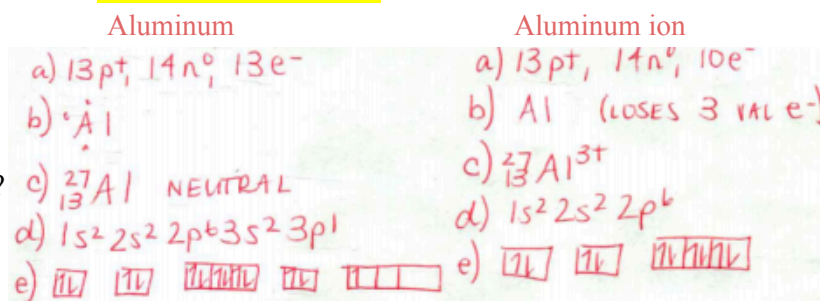 Aluminum
a) 13p⁺, 14n⁰, 13e⁻
b) Al
c) ²⁷₁₃Al NEUTRAL
d) 1s² 2s² 2p⁶ 3s² 3p¹
e)
Aluminum ion
a) 13p⁺, 14n⁰, 10e⁻
b) Al (LOSES 3 VAL e⁻)
c) ²⁷₁₃Al³⁺
d) 1s² 2s² 2p⁶
e)